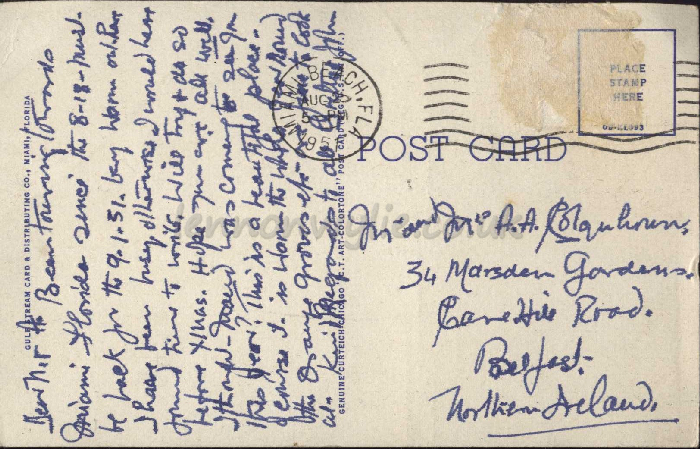 Dear Mr &
Miami Florida since the 8-18-
be back for the 9.1.51. very warm out here
I have been busy otherwise I would have
found time to write. Will try & do so
before Xmas. Hope you are all well.
I thought was coming to see you
this year? This is a beautiful place.
course it is warm the whole year round
the Orange groves etc look
Kind Regards to all John
GULF STREAM CARD & DISTRIBUTING CO., MIAMI, FLORIDA
GENUINE CURTEICH-CHICAGO "C.T. ART-COLORTONE" POST CARD
MIAMI BEACH, FLA.
AUG
PLACE
STAMP
HERE
POST CARD
Mr and Mrs A.A. Colquhoun,
34 Marsden Gardens.
Cave Hill Road.
Belfast.
Northern Ireland.